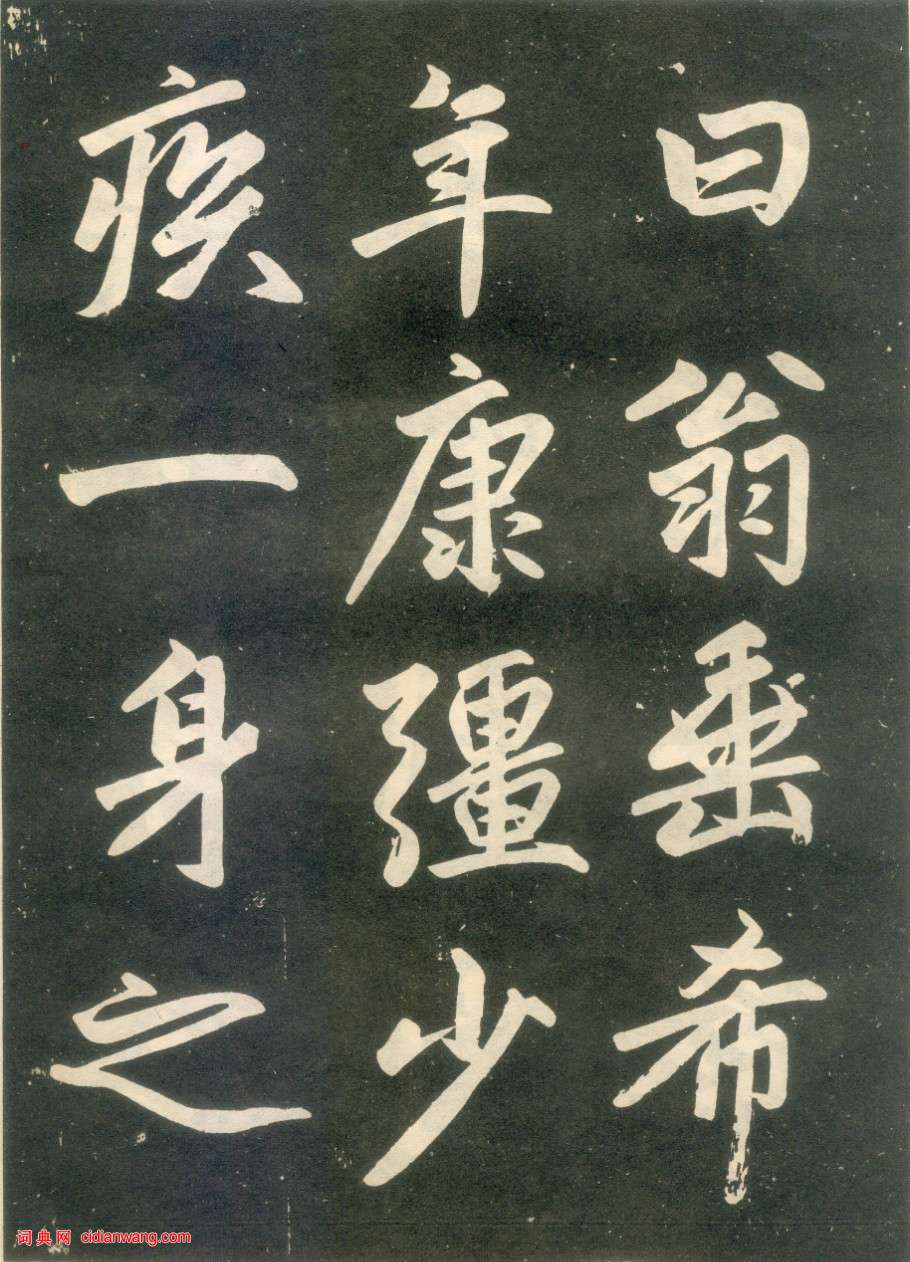 曰翁垂希
年康彊少
疾一身之
词典网 cidianwang.com